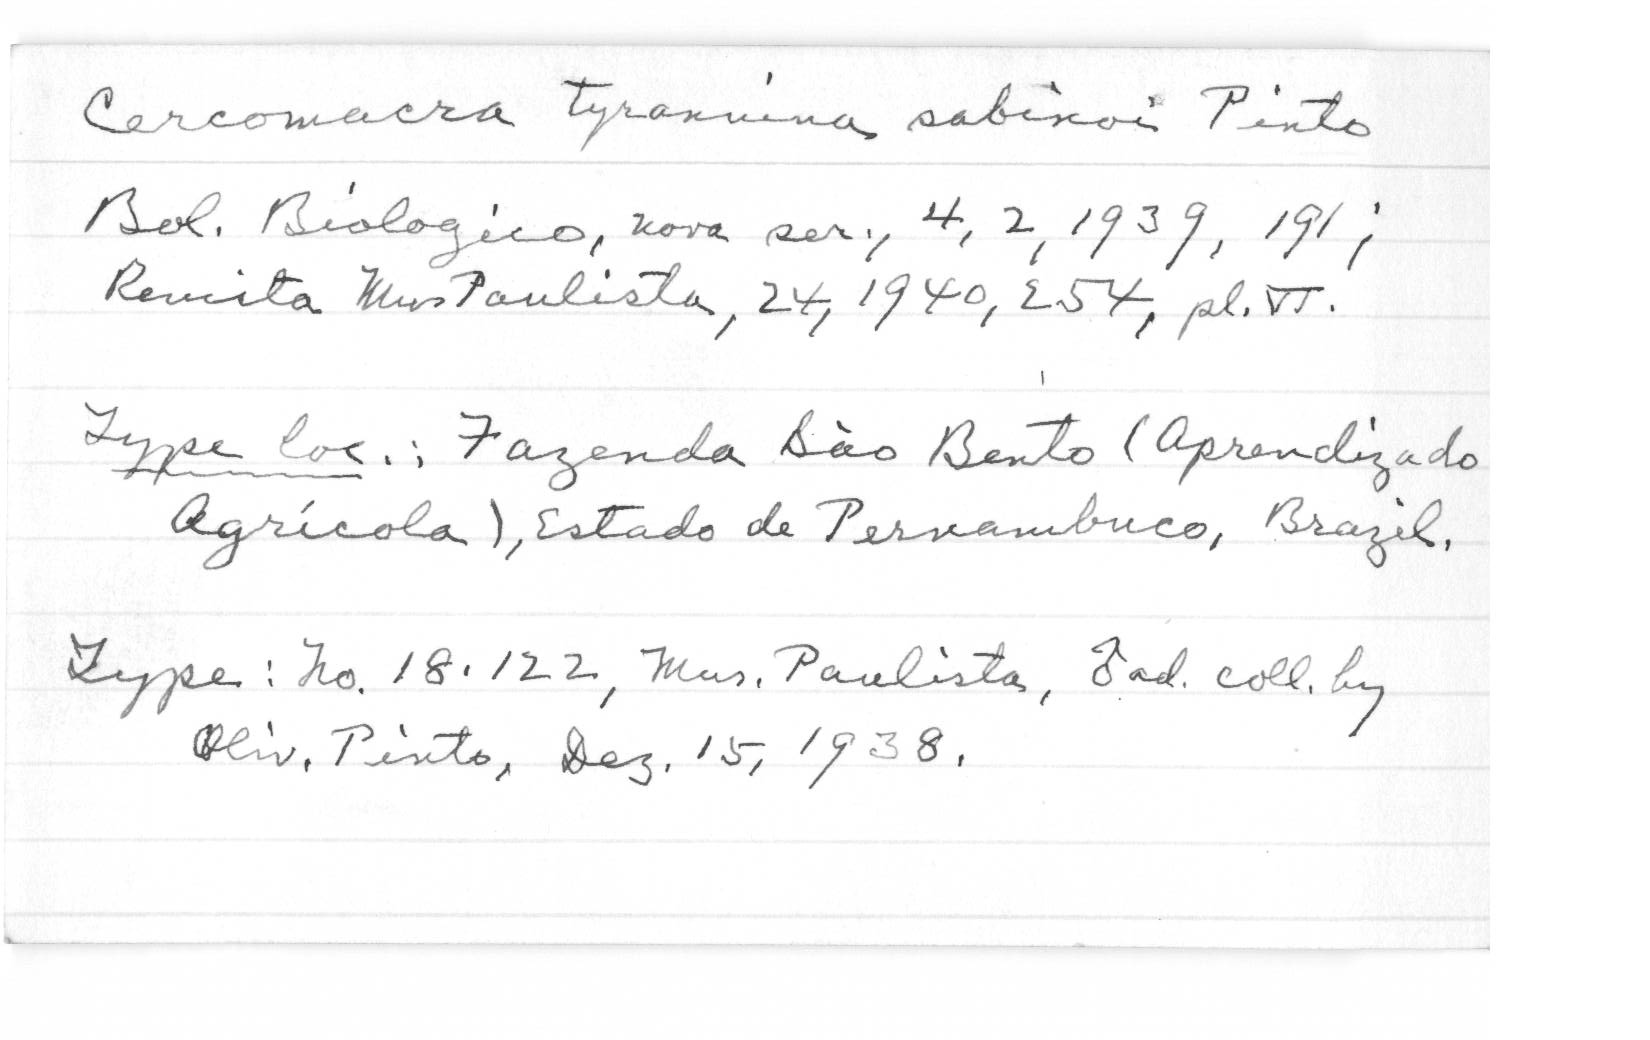 Cercomacra tyrannina sabinoi Pinto
Bol. Biologico, nova ser., 4, 2, 1939, 191;
Revista Mus Paulista, 24, 1940, 254, pl. VI.
Type loc.: Fazenda São Bento (Aprendizado
Agrícola), Estado de Pernambuco, Brazil.
Type: No. 18.122, Mus. Paulista, ♂ ad. coll. by
Oliv. Pinto, Dez. 15, 1938.